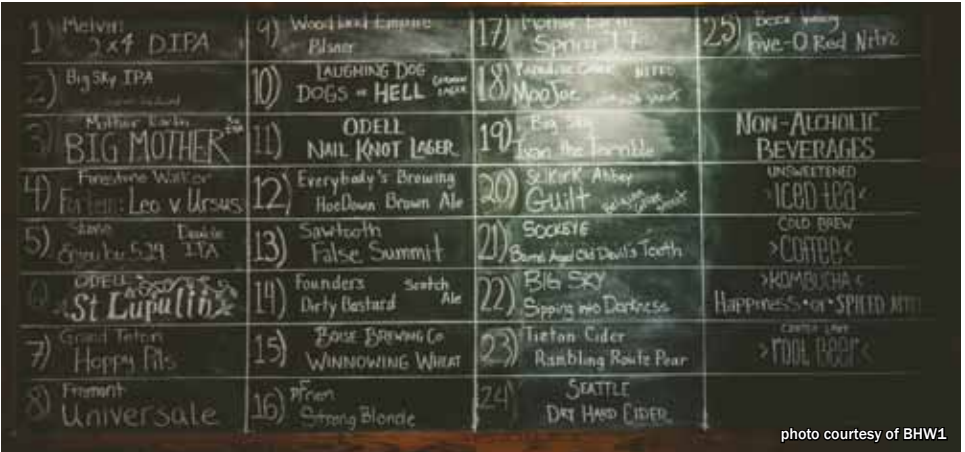 1) Melvin
2x4 DIPA
2) Big Sky IPA
3) Mother Earth
BIG MOTHER
4) Firestone Walker
Leo v Ursus
5) Stone Double
Enjoy by 5.29 IPA
ODELL
St Lupulin
7) Grand Teton
Hoppy Pils
8) Fremont
Universale
9) Woodland Empire
Pilsner
10) LAUGHING DOG
DOGS OF HELL
11) ODELL
NAIL KNOT LAGER
12) Everybody's Brewing
HoeDown Brown Ale
13) Sawtooth
False Summit
14) Founders Scotch
Dirty Bastard Ale
15) BOISE BREWING CO
WINNOWING WHEAT
16) pFriem
Strong Blonde
17) Mother Earth
Spring 17
18) Paradise Creek NITRO
MooJoe
19) Big Sky
Ivan the Terrible
20) Selkirk Abbey
Guilt
21) SOCKEYE
Barrel Aged Old Devil's Tooth
22) BIG SKY
Sipping into Darkness
23) Tieton Cider
Rambling Route Pear
24) SEATTLE
DRY HARD CIDER
25)
Five-O Red Nitro
NON-ALCHOLIC
BEVERAGES
UNSWEETENED
>ICED tea<
COLD BREW
>COFFEE<
>KOMBUCHA<
HAPPINESS •or• SPICED
>root Beer<
photo courtesy of BHW1